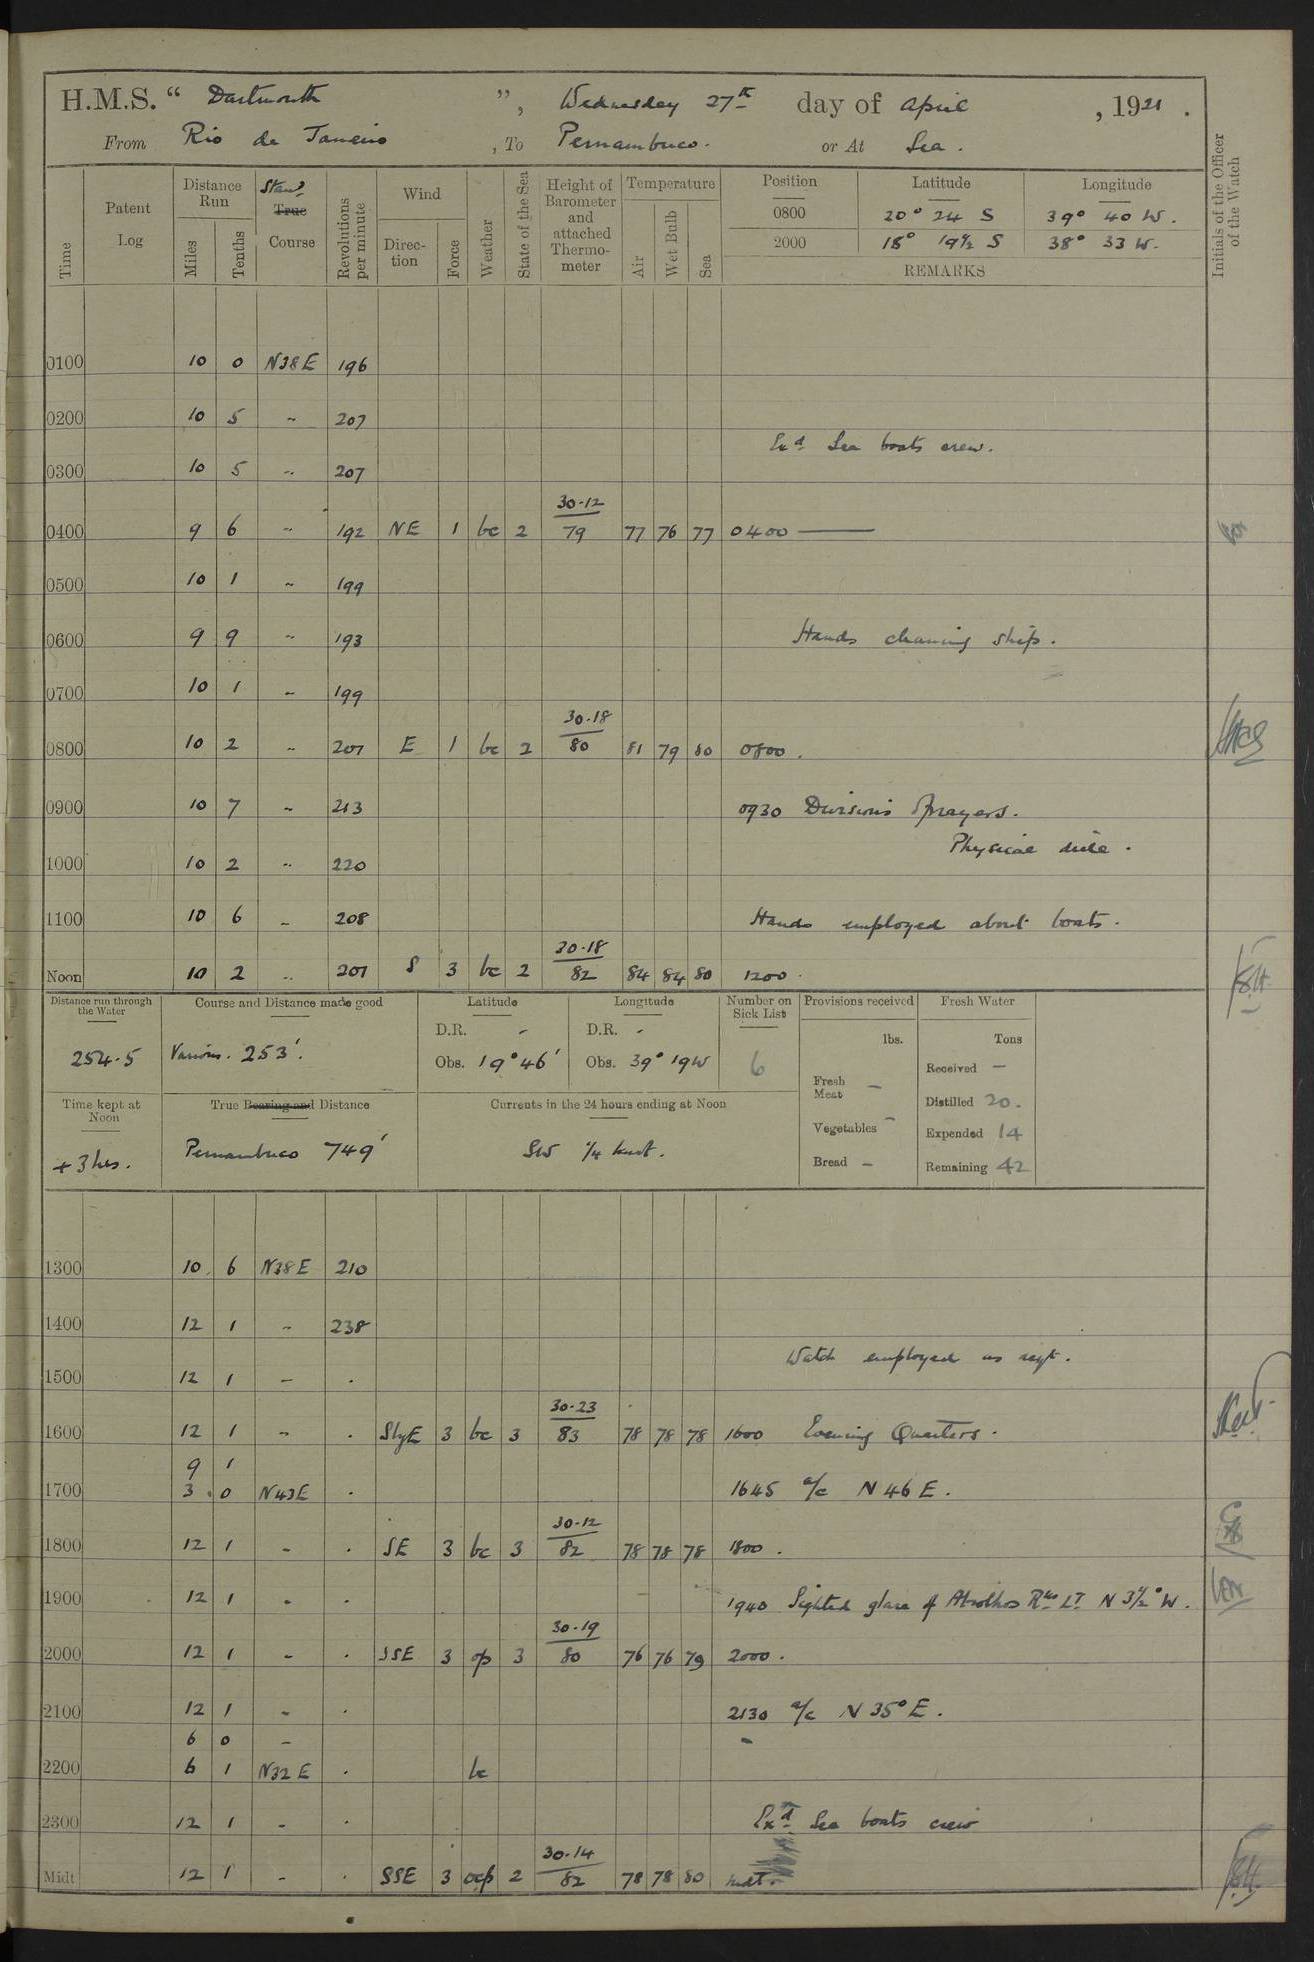 H.M.S. “ Dartmouth ”, Wednesday 27th day of April , 1921 .
From Rio de Janeiro , To Pernambuco . or At Sea .
Time Patent Log Distance Run Miles Tenths Stand. True Course Revolutions per minute Wind Direction Force Weather State of the Sea Height of Barometer and attached Thermometer Temperature Air Wet Bulb Sea Position Latitude Longitude Initials of the Officer of the Watch
0800 20° 24 S 39° 40 W .
2000 18° 19½ S 38° 33 W .
REMARKS
0100 10 0 N38E 196
0200 10 5 " 207
Exd. Sea boats crew.
0300 10 5 " 207
30·12
0400 9 6 " 192 NE 1 bc 2 79 77 76 77 0400 ——
0500 10 1 " 199
0600 9 9 " 193 Hands cleaning ship .
0700 10 1 " 199
30·18
0800 10 2 " 201 E 1 bc 2 80 81 79 80 0800 .
0900 10 7 " 213 0930 Divisions & prayers .
Physical drill .
1000 10 2 " 220
1100 10 6 " 208 Hands employed about boats .
30·18
Noon 10 2 " 201 S 3 bc 2 82 84 84 80 1200 .
Distance run through the Water Course and Distance made good Latitude Longitude Number on Sick List Provisions received Fresh Water
D.R. - D.R. - lbs. Tons
254·5 Various . 253' . Obs. 19° 46' Obs. 39° 19W 6 Received —
Fresh Meat —
Time kept at Noon True Bearing and Distance Currents in the 24 hours ending at Noon Distilled 20 .
Vegetables - Expended 14
+ 3 hrs . Pernambuco 749' SW ¼ knot . Bread — Remaining 42
1300 10 6 N38E 210
1400 12 1 " 238
Watch employed as reqt .
1500 12 1 " .
30·23
1600 12 1 " . SbyE 3 bc 3 83 78 78 78 1600 Evening Quarters .
9 1
1700 3 0 N43E . 1645 a/c N 46 E .
30·12
1800 12 1 " . SE 3 bc 3 82 78 78 78 1800 .
1900 12 1 " . 1940 Sighted glare of Abrolhos Rks Lt N 3½° W .
30·19
2000 12 1 " . SSE 3 op 3 80 76 76 79 2000 .
2100 12 1 " . 2130 a/c N 35° E .
6 0 "
2200 6 1 N32E . bc
2300 12 1 " . Exd. Sea boats crew
30·14
Midt 12 1 " . SSE 3 ocp 2 82 78 78 80 Midt .